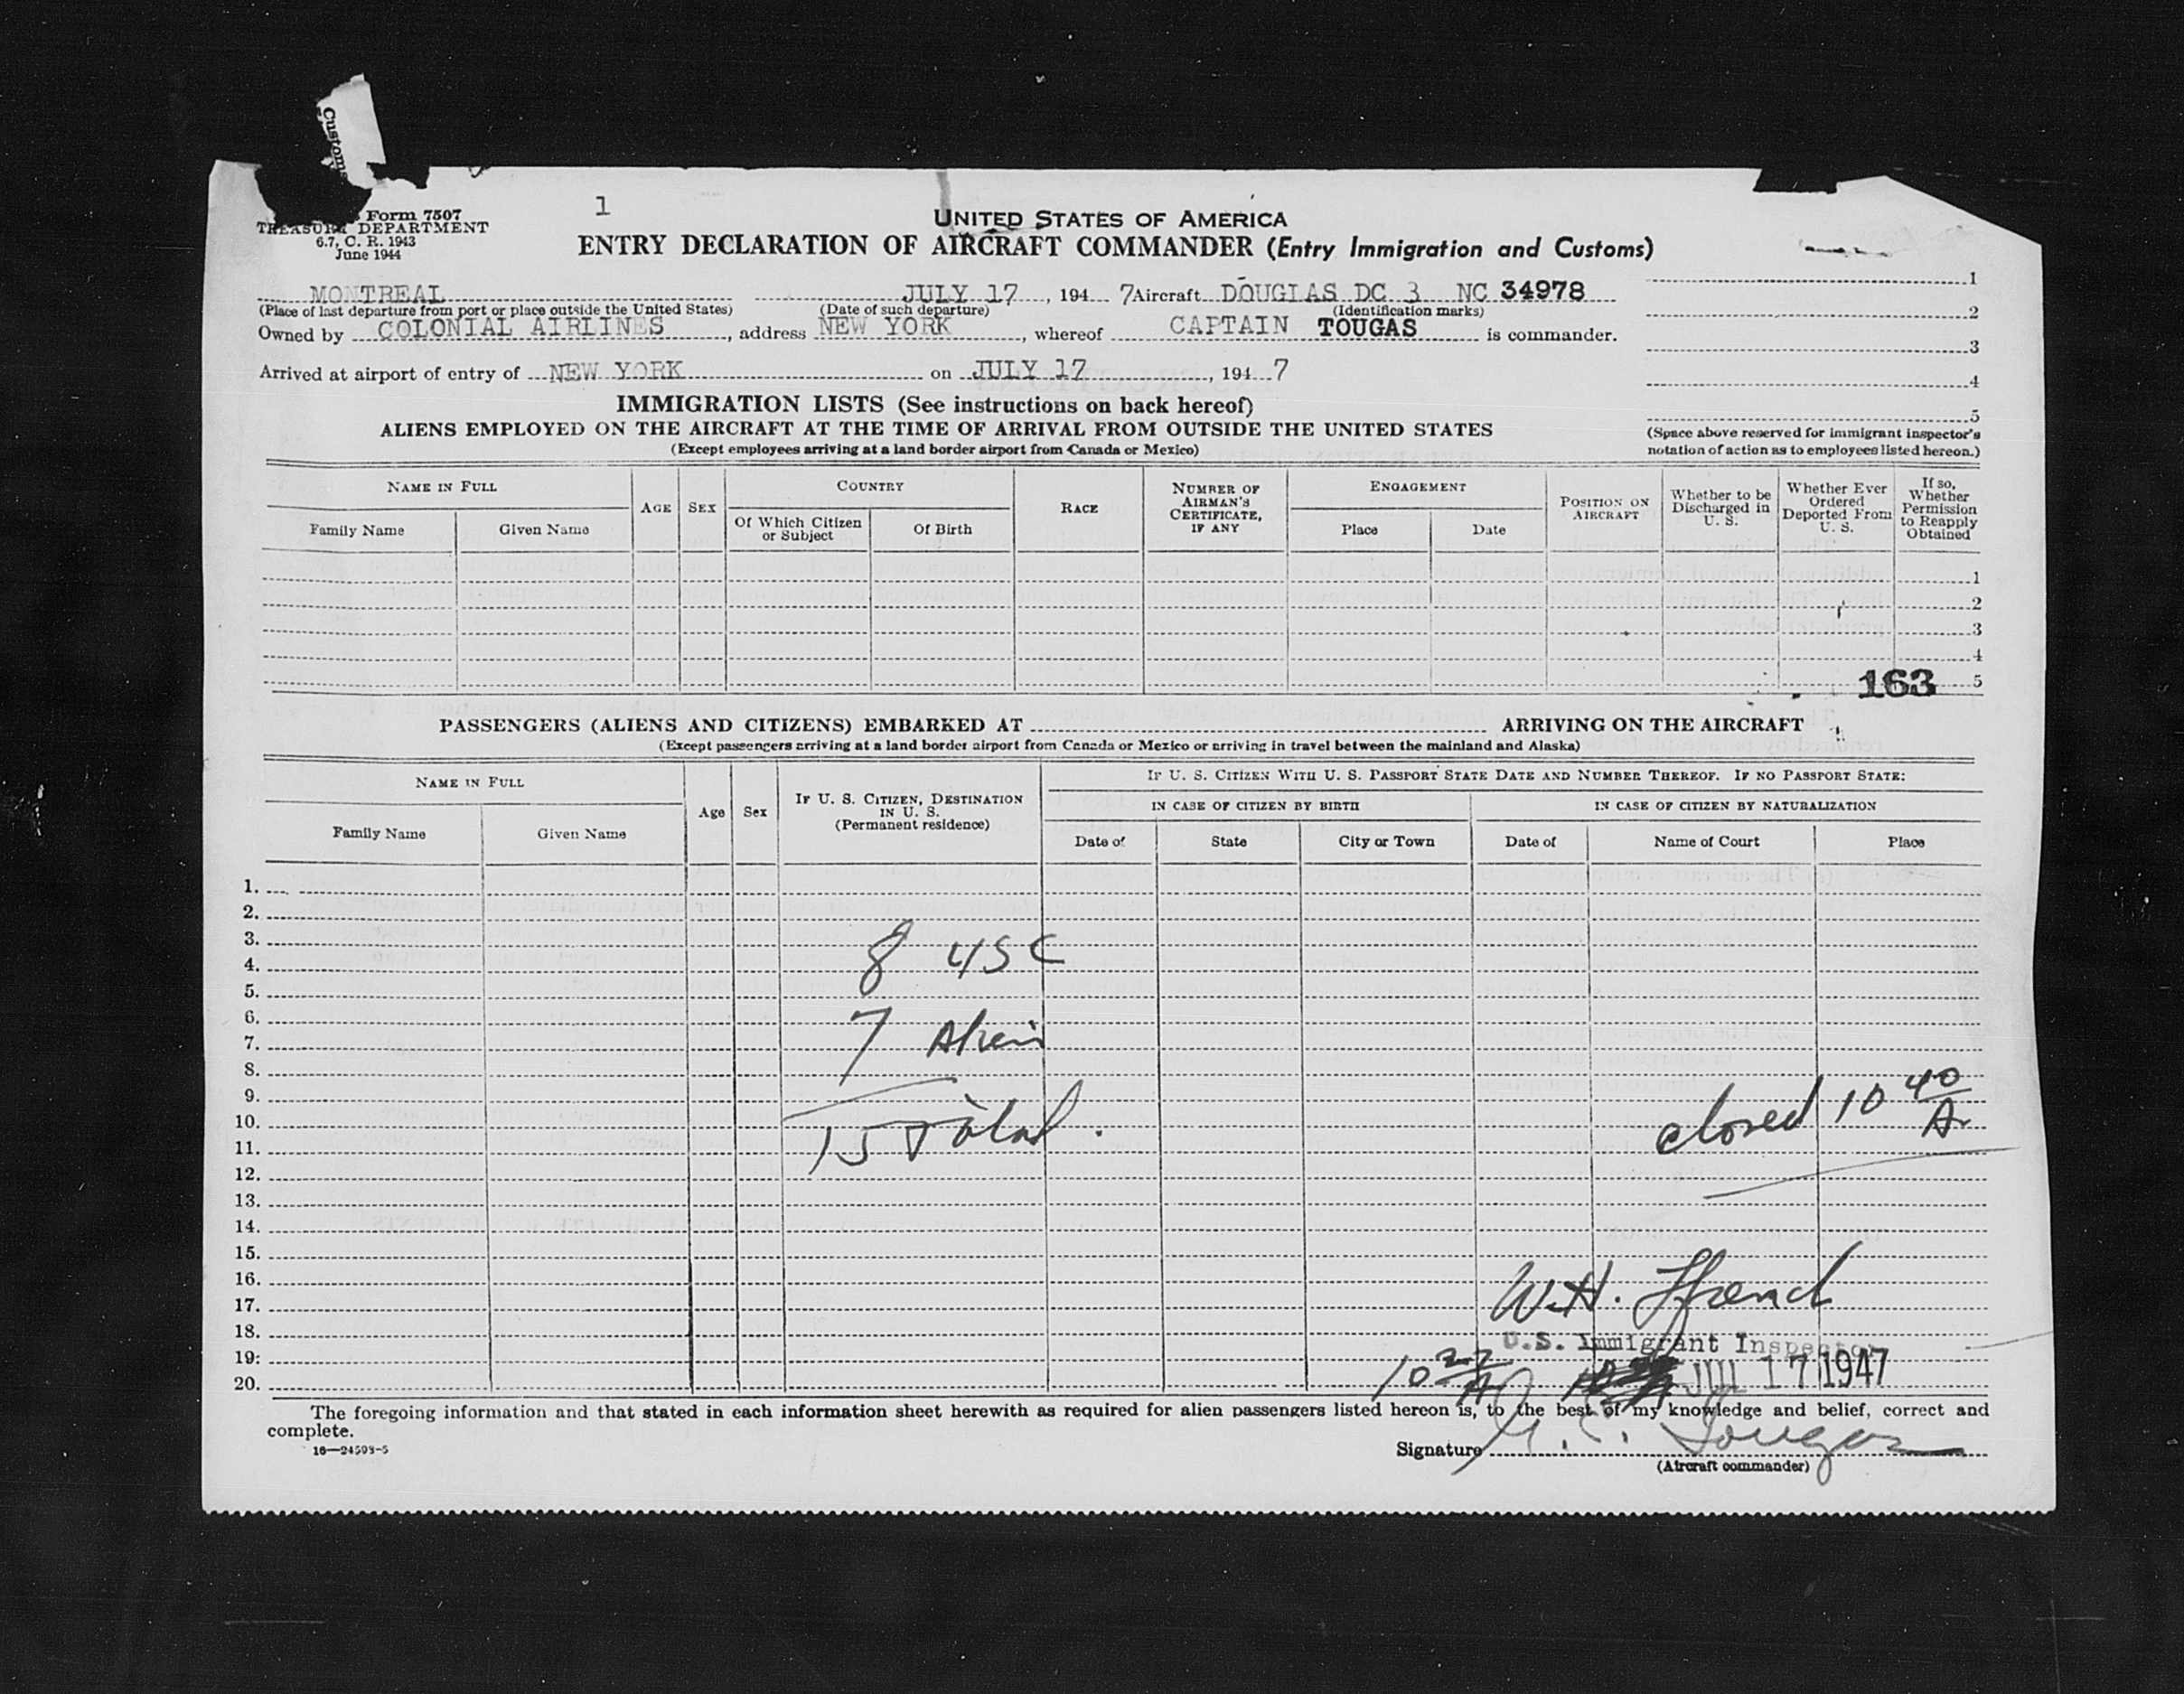 Customs
Form 7507
TREASURY DEPARTMENT
6.7, C. R. 1943
June 1944
1
UNITED STATES OF AMERICA
ENTRY DECLARATION OF AIRCRAFT COMMANDER (Entry Immigration and Customs)
MONTREAL JULY 17, 1947 Aircraft DOUGLAS DC 3 NC 34978
(Place of last departure from port or place outside the United States) (Date of such departure) (Identification marks)
Owned by COLONIAL AIRLINES, address NEW YORK, whereof CAPTAIN TOUGAS is commander.
Arrived at airport of entry of NEW YORK on JULY 17, 1947
1
2
3
4
5
(Space above reserved for immigrant inspector's notation of action as to employees listed hereon.)
IMMIGRATION LISTS (See instructions on back hereof)
ALIENS EMPLOYED ON THE AIRCRAFT AT THE TIME OF ARRIVAL FROM OUTSIDE THE UNITED STATES
(Except employees arriving at a land border airport from Canada or Mexico)
NAME IN FULL
Family Name Given Name
AGE
SEX
COUNTRY
Of Which Citizen or Subject
Of Birth
RACE
NUMBER OF AIRMAN'S CERTIFICATE, IF ANY
ENGAGEMENT
Place Date
POSITION ON AIRCRAFT
Whether to be Discharged in U. S.
Whether Ever Ordered Deported From U. S.
If so, Whether Permission to Reapply Obtained
1
2
3
4
5
163
PASSENGERS (ALIENS AND CITIZENS) EMBARKED AT ARRIVING ON THE AIRCRAFT
(Except passengers arriving at a land border airport from Canada or Mexico or arriving in travel between the mainland and Alaska)
NAME IN FULL
Family Name Given Name
Age
Sex
IF U. S. CITIZEN, DESTINATION IN U. S.
(Permanent residence)
IF U. S. CITIZEN WITH U. S. PASSPORT STATE DATE AND NUMBER THEREOF. IF NO PASSPORT STATE:
IN CASE OF CITIZEN BY BIRTH IN CASE OF CITIZEN BY NATURALIZATION
Date of State City or Town Date of Name of Court Place
1.
2.
3.
8 USC
4.
5.
6.
7.
7 Alein
8.
9.
closed 10 40 A
10.
15 Total.
11.
12.
13.
14.
15.
16.
W.H. Ffrench
17.
18.
U.S. Immigrant Inspector
19.
10 27 A JUL 17 1947
20.
The foregoing information and that stated in each information sheet herewith as required for alien passengers listed hereon is, to the best of my knowledge and belief, correct and
complete.
16—24593-5
Signature Tougas
(Aircraft commander)